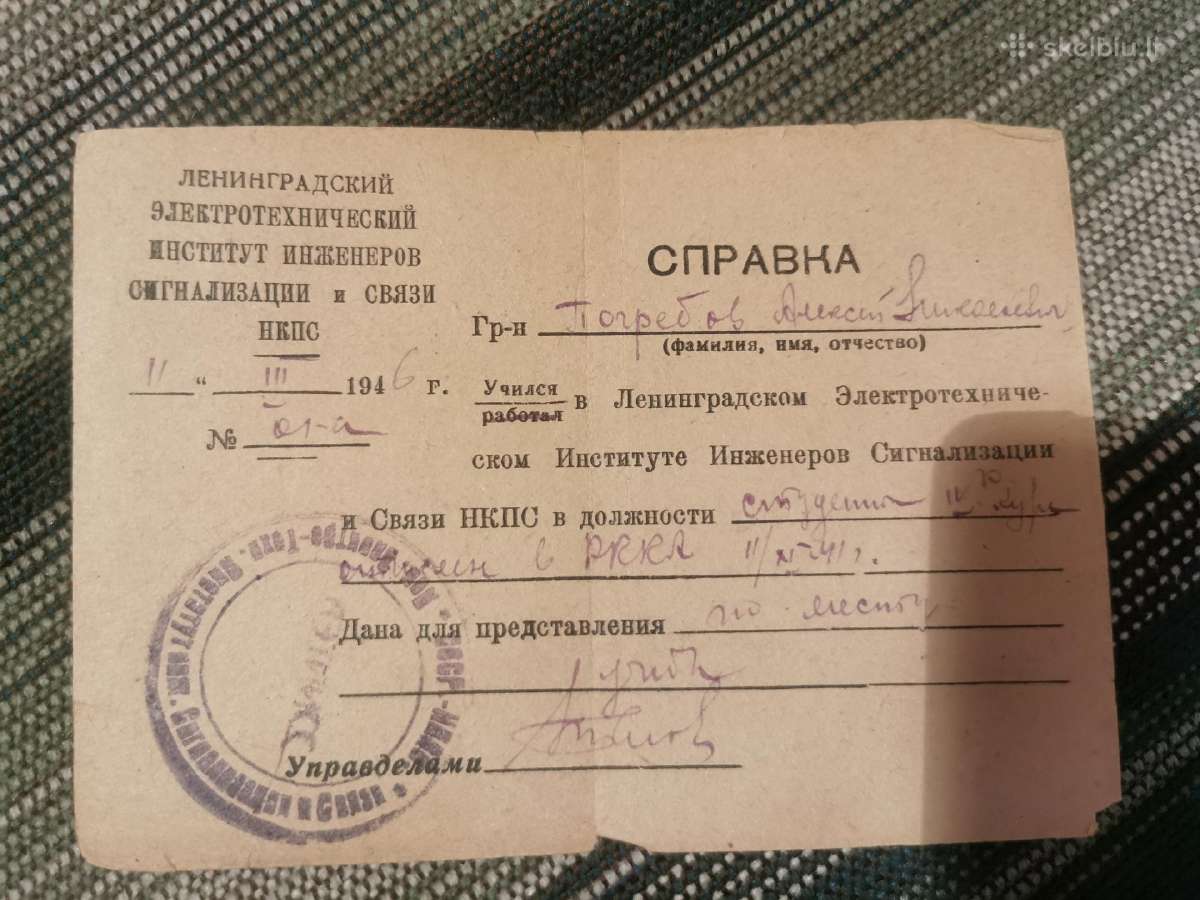 skelbiu.lt
ЛЕНИНГРАДСКИЙ
ЭЛЕКТРОТЕХНИЧЕСКИЙ
ИНСТИТУТ ИНЖЕНЕРОВ
СИГНАЛИЗАЦИИ и СВЯЗИ
НКПС
11 " III 1946 г.
№
СПРАВКА
Гр-н Погребов Алексей Николаевич
(фамилия, имя, отчество)
Учился
работал
в Ленинградском Электротехниче-
ском Институте Инженеров Сигнализации
и Связи НКПС в должности студента
в РККА
Дана для представления по месту
учебы
Управделами
Сигнализации и Связи